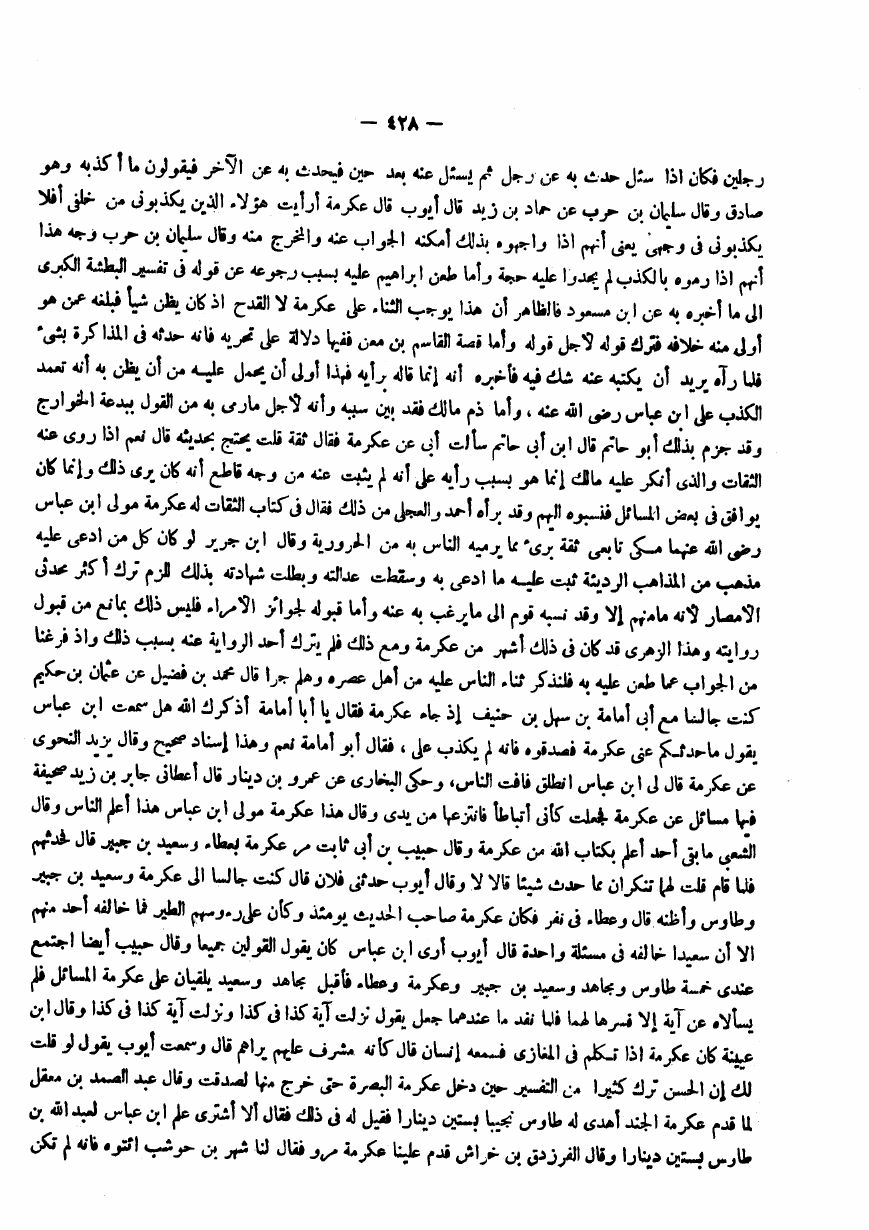 — ٤٢٨ —
رجلين فكان اذا سئل حدث به عن رجل ثم يسئل عنه بعد حين فيحدث به عن الآخر فيقولون ما أكذبه وهو
صادق وقال سليمان بن حرب عن حماد بن زيد قال أيوب قال عكرمة أرأيت هؤلاء الذين يكذبونى من خلفى أفلا
يكذبونى فى وجهى يعنى أنهم اذا واجهوه بذلك أمكنه الجواب عنه والمخرج منه وقال سليمان بن حرب وجه هذا
أنهم اذا رموه بالكذب لم يجدوا عليه حجة وأما طعن ابراهيم عليه بسبب رجوعه عن قوله فى تفسير البطشة الكبرى
الى ما أخبره به عن ابن مسعود فالظاهر أن هذا يوجب الثناء على عكرمة لا القدح اذ كان يظن شيأ فبلغه عمن هو
أولى منه خلافه فترك قوله لأجل قوله وأما قصة القاسم بن معن ففيها دلالة على تحريه فانه حدثه فى المذاكرة بشىء
فلما رآه يريد أن يكتبه عنه شك فيه فأخبره أنه إنما قاله برأيه فهذا أولى أن يحمل عليه من أن يظن به أنه تعمد
الكذب على ابن عباس رضى الله عنه ، وأما ذم مالك فقد بين سببه وأنه لأجل مارمى به من القول ببدعة الخوارج
وقد جزم بذلك أبو حاتم قال ابن أبى حاتم سألت أبى عن عكرمة فقال ثقة قلت يحتج بحديثه قال نعم اذا روى عنه
الثقات والذى أنكر عليه مالك إنما هو بسبب رأيه على أنه لم يثبت عنه من وجه قاطع أنه كان يرى ذلك وإنما كان
يوافق فى بعض المسائل فنسبوه اليهم وقد برأه أحمد والعجلى من ذلك فقال فى كتاب الثقات له عكرمة مولى ابن عباس
رضى الله عنهما مكى تابعى ثقة برىء مما يرميه الناس به من الحرورية وقال ابن جرير لو كان كل من ادعى عليه
مذهب من المذاهب الرديئة ثبت عليه ما ادعى به وسقطت عدالته وبطلت شهادته بذلك للزم ترك أكثر محدثى
الأمصار لأنه مامنهم إلا وقد نسبه قوم الى مايرغب به عنه وأما قبوله لجوائز الأمراء فليس ذلك بمانع من قبول
روايته وهذا الزهرى قد كان فى ذلك أشهر من عكرمة ومع ذلك فلم يترك أحد الرواية عنه بسبب ذلك واذ فرغنا
من الجواب عما طعن عليه به فلنذكر ثناء الناس عليه من أهل عصره وهلم جرا قال محمد بن فضيل عن عثمان بن حكيم
كنت جالسا مع أبى أمامة بن سهل بن حنيف إذ جاء عكرمة فقال يا أبا أمامة أذكرك الله هل سمعت ابن عباس
يقول ماحدثكم عنى عكرمة فصدقوه فانه لم يكذب على ، فقال أبو أمامة نعم وهذا إسناد صحيح وقال يزيد النحوى
عن عكرمة قال لى ابن عباس انطلق فافت الناس، وحكى البخارى عن عمرو بن دينار قال أعطانى جابر بن زيد صحيفة
فيها مسائل عن عكرمة فجعلت كأنى أتباطأ فانتزعها من يدى وقال هذا عكرمة مولى ابن عباس هذا أعلم الناس وقال
الشعبى مابقى أحد أعلم بكتاب الله من عكرمة وقال حبيب بن أبى ثابت مر عكرمة بعطاء وسعيد بن جبير قال فحدثهم
فلما قام قلت لهما تنكران مما حدث شيئا قالا لا وقال أيوب حدثنى فلان قال كنت جالسا الى عكرمة وسعيد بن جبير
وطاوس وأظنه قال وعطاء فى نفر فكان عكرمة صاحب الحديث يومئذ وكأن على رءوسهم الطير فما خالفه أحد منهم
الا أن سعيدا خالفه فى مسئلة واحدة قال أيوب أرى ابن عباس كان يقول القولين جميعا وقال حبيب أيضا اجتمع
عندى خمسة طاوس ومجاهد وسعيد بن جبير وعكرمة وعطاء فأقبل مجاهد وسعيد يلقيان على عكرمة المسائل فلم
يسألاه عن آية إلا فسرها لهما فلما نفد ما عندهما جعل يقول نزلت آية كذا فى كذا ونزلت آية كذا فى كذا وقال ابن
عيينة كان عكرمة اذا تكلم فى المغازى فسمعه إنسان قال كأنه مشرف عليهم يراهم قال وسمعت أيوب يقول لو قلت
لك إن الحسن ترك كثيرا من التفسير حين دخل عكرمة البصرة حتى خرج منها لصدقت وقال عبد الصمد بن معقل
لما قدم عكرمة الجند أهدى له طاوس نجيبا بستين دينارا فقيل له فى ذلك فقال ألا أشترى علم ابن عباس لعبد الله بن
طاوس بستين دينارا وقال الفرزدق بن خراش قدم علينا عكرمة مرو فقال لنا شهر بن حوشب ائتوه فانه لم تكن